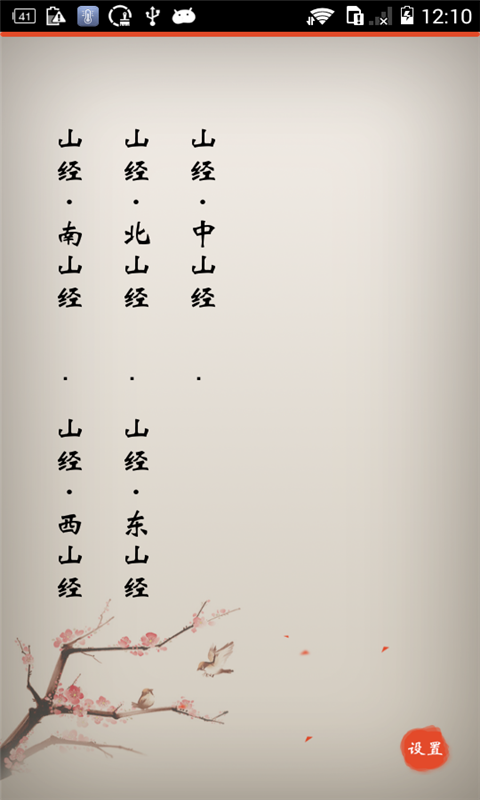 41
12:10
山经·南山经
·
山经·西山经
山经·北山经
·
山经·东山经
山经·中山经
·
设置